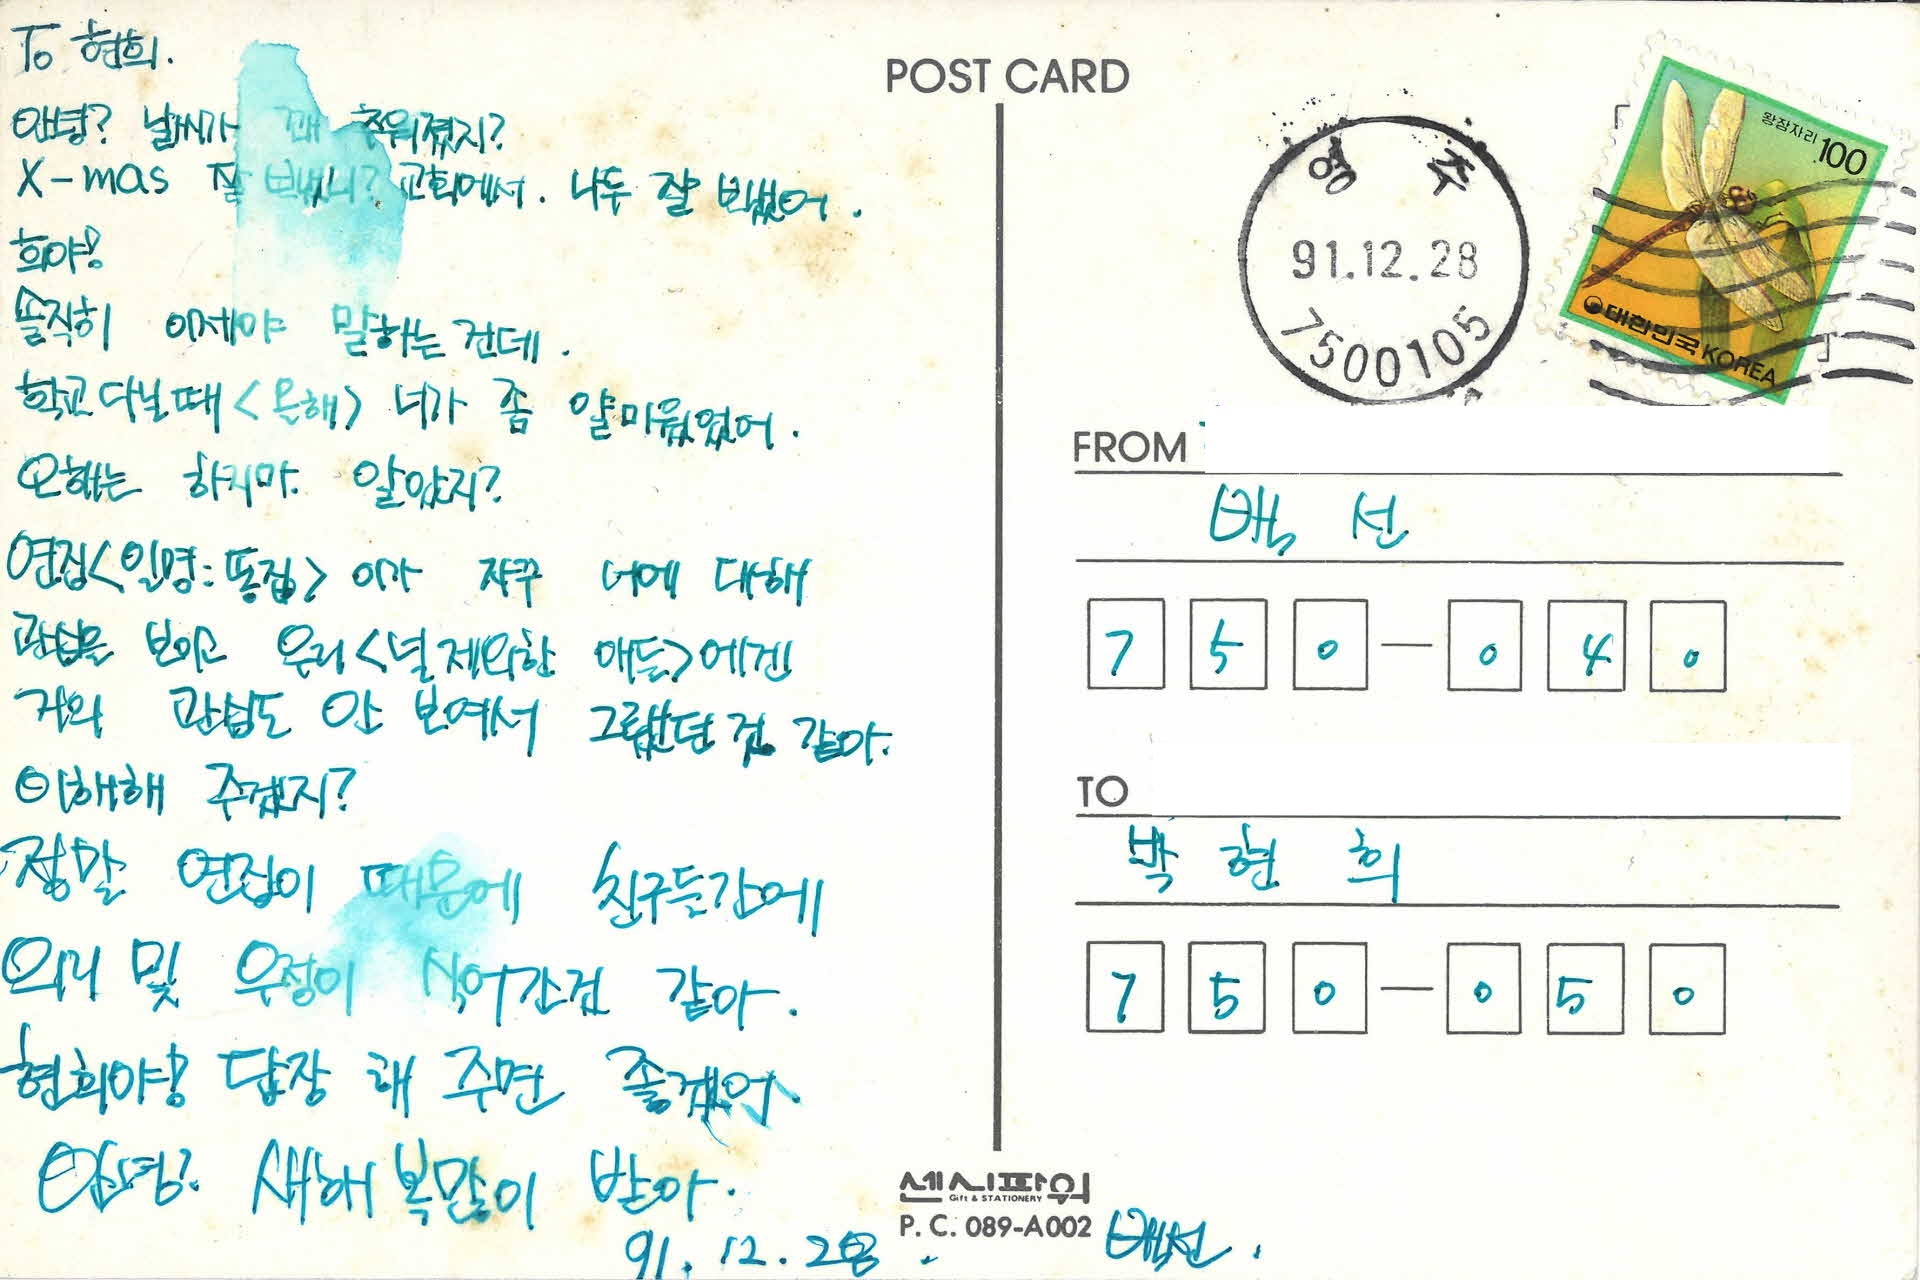 To 현희.
안녕? 날씨가 꽤 추워졌지?
X-mas 잘 보냈니? 교회에서. 나두 잘 보냈어.
희야!
솔직히 이제야 말하는건데.
학교다닐때 <은해> 너가 좀 얄미웠었어.
오해는 하지마. 알았지?
연집<일명:똥집> 이가 자꾸 너에 대해
관심을 보이고 우리<널 제외한 애들>에겐
거의 관심도 안 보여서 그랬던것 같아.
이해해 주겠지?
정말 연집이 때문에 친구들간에
의리 및 우정이 식어간것 같아.
현희야! 답장 꽤 주면 좋겠어.
안녕? 새해 복많이 받아.
91. 12. 28.
백선.
POST CARD
영주
91.12.28
7500105
왕잠자리 100
대한민국 KOREA
FROM
백 선
7 5 0 - 0 4 0
TO
박 현 희
7 5 0 - 0 5 0
센시파워
Gift & STATIONERY
P. C. 089-A002